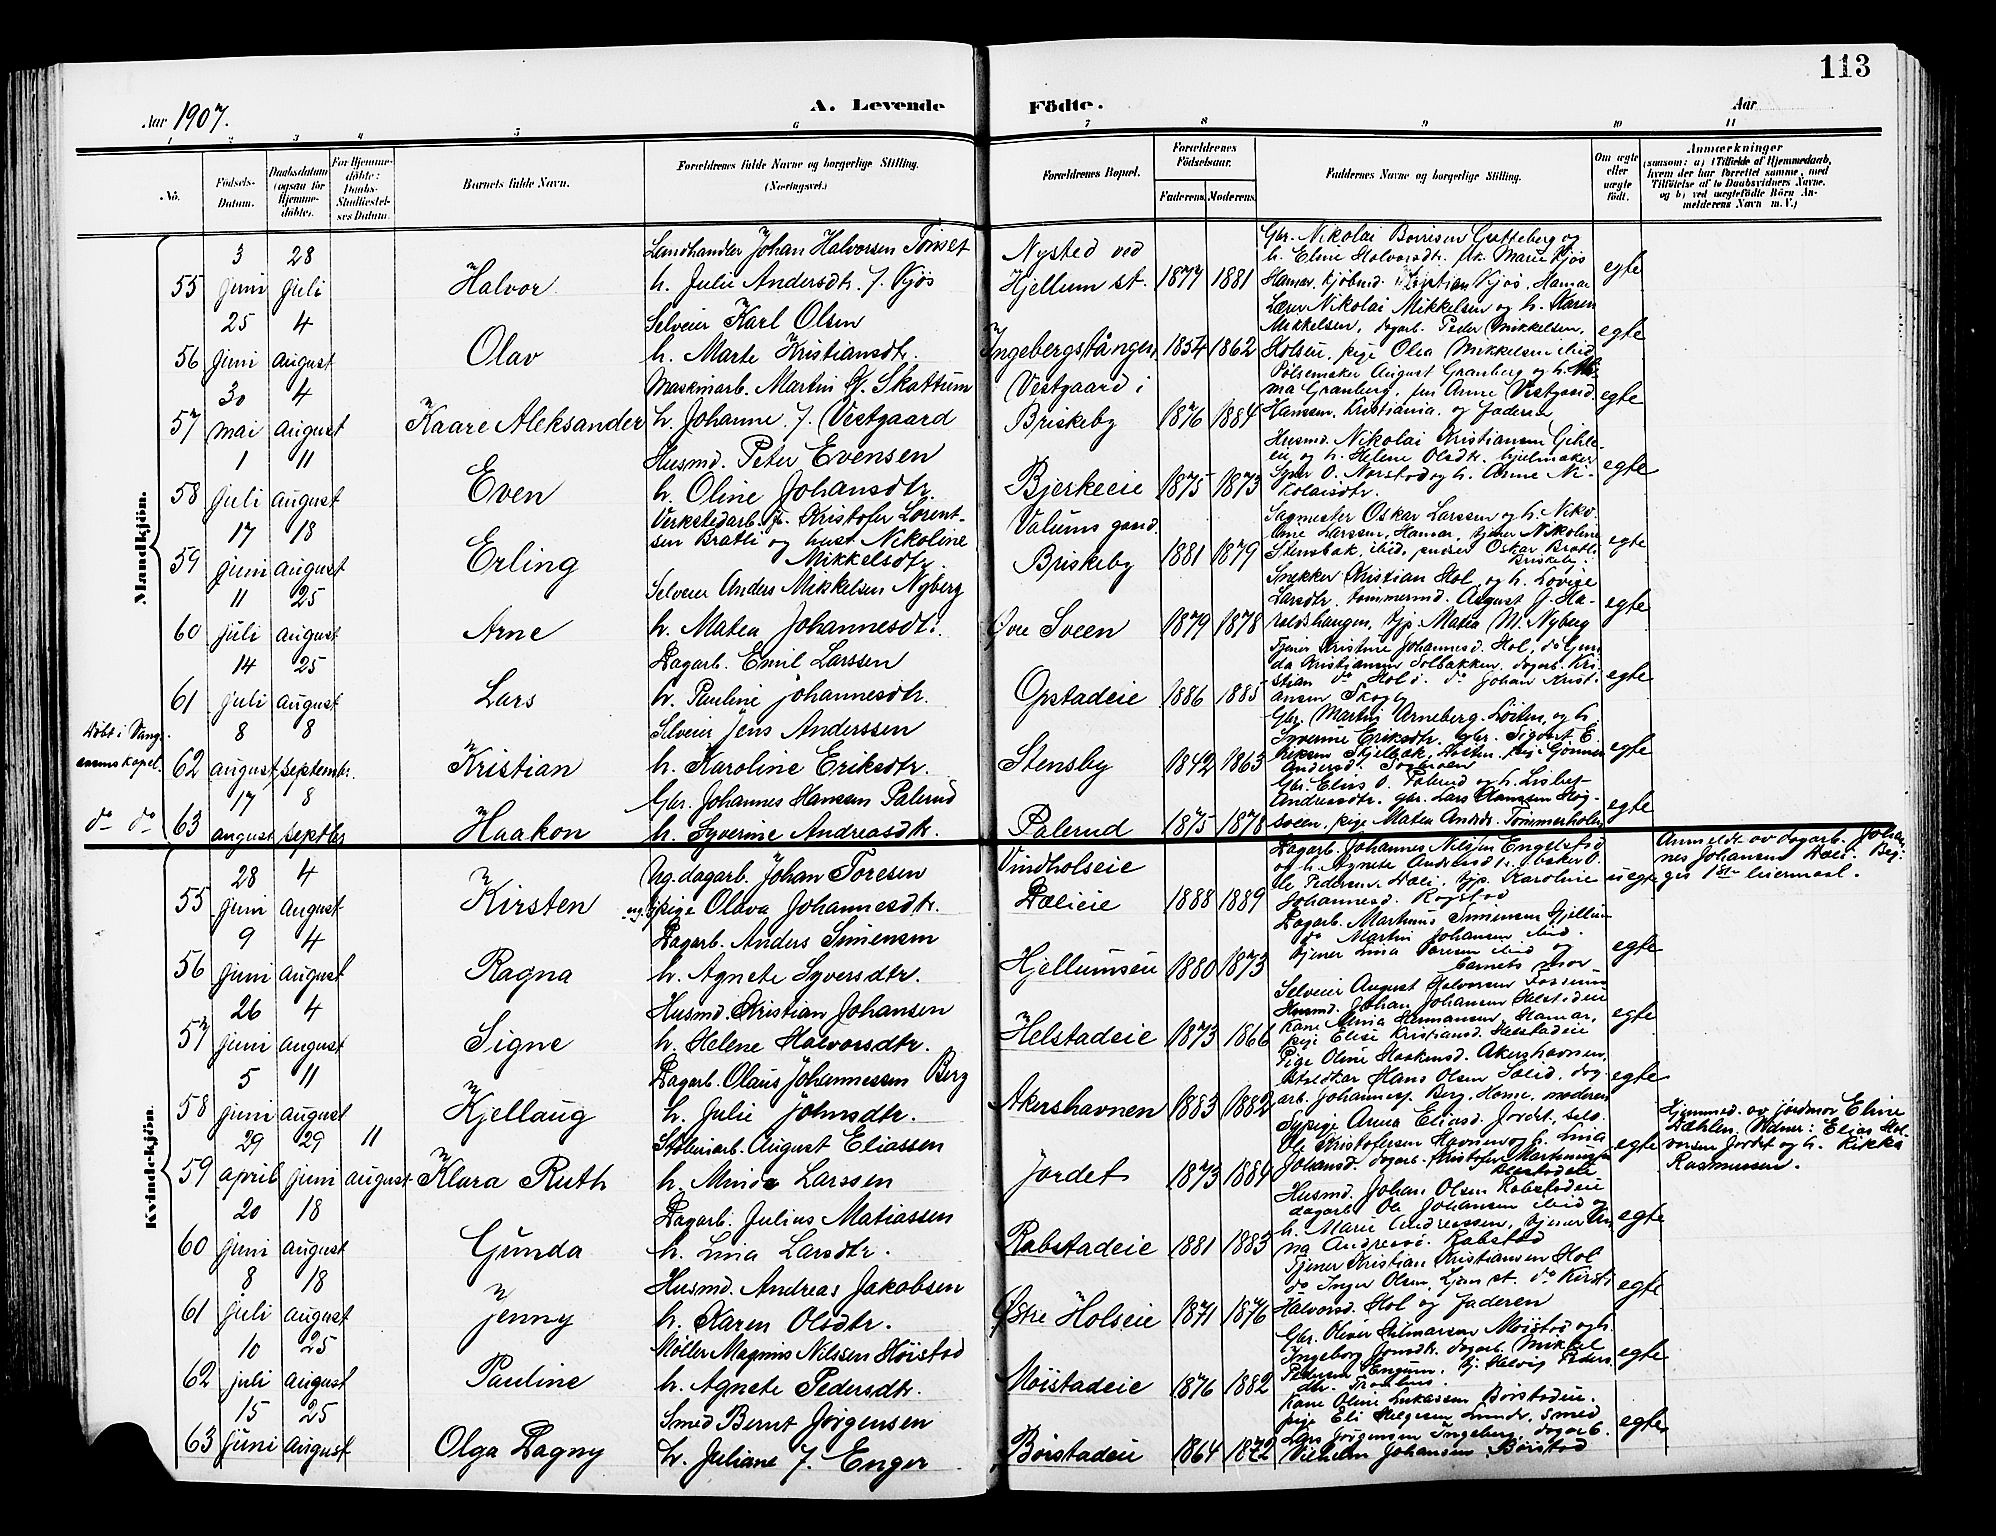 113
Aar 1907.
A. Levende Födte.
Aar
1 2 3 4 5 6 7 8 9 10 11
No.
Födsels-Datum.
Daabsdatum (ogsaa for Hjemmedöbte).
For Hjemmedöbte: Daabs-Stadfæstelses Datum.
Barnets fulde Navn.
Forældrenes fulde Navne og borgerlige Stilling. (Næringsvei.)
Forældrenes Bopæl.
Forældrenes Födselsaar.
Faderens. Moderens.
Faddernes Navne og borgerlige Stilling.
Om ægte eller uægte födt.
Anmærkninger (saasom: a) i Tilfælde af Hjemmedaab, hvem der har forrettet samme, med Tilföielse af to Daabsvidners Navne, og b) ved uægtefödte Börn Anmelderens Navn m. V.)
Mandkjön.
55 3 juni 28 juli Halvor
Landhandler Johan Halvorsen Tönset
h. Julie Andersdtr. f. Kjös
Nysted ved Hjellum st. 1877 1881
Gbr. Nikolai Borresen Grøtteberg og
h. Eline Halvorsdtr. frk. Marie Kjös
Hamar, kjöbmd. Kristian Kjös, Hamar
egte
56 25 juni 4 august Olav
Selveier Karl Olsen
h. Marte Kristiansdtr.
Ingebergstangen 1854 1862
Lærer Nikolai Mikkelsen og h. Karen
Mikkelsen, dagarb. Peder Mikkelsen,
Holseie, pige Olea Mikkelsen ibid
egte
57 30 mai 4 august Kaare Aleksander
Maskinarb. Martin K. Skattum
h. Johanne f. Vestgaard
Vestgaard i Briskeby 1876 1884
Pölsemaker August Granberg og h.
Granberg, frn Anne Vestgaard
Hansen, Kristiania, og faderen
egte
58 1 juli 11 august Even
Husmd. Peter Evensen
h. Oline Johansdtr.
Bjerkeeie 1875 1873
Husmd. Nikolai Kristiansen Gihle-
eie og h. Helene Olsdtr. hjulmaker
Syver O. Norstad og h. Anne Ni-
kolaisdtr.
egte
59 17 juni 18 august Erling
Verkstedarb. Kristofer Lorent-
sen Bratli og hust. Nikoline
Mikkelsdtr.
Valums gaard. Briskeby 1881 1879
Sagmester Oskar Larssen og h. Niko-
line Larssen, Hamar, tjener Nikoline
Stensbak, ibid, pudser Oskar Bratli
Briskeby.
egte
60 11 juli 25 august Arne
Selveier Anders Mikkelsen Nyberg
h. Matea Johannesdtr.
Øvre Sveen 1879 1878
Snekker Kristian Hol og h. Lovise
Larsdtr. tømmermd. August J. Ha-
raldshaugen, tjp. Matea M. Nyberg
egte
61 14 juli 25 august Lars
Dagarb. Emil Larssen
h. Pauline Johannesdtr.
Opstadeie 1886 1885
Tjener Kristine Johannesd. Hol, do Gun-
da Kristiansen Solbakken, dagarb. Kri-
stian do Hol, do Johan Kristi-
ansen Skogly
egte
Döbt i Vang-
aasens kapel. 62 8 august 8 septembr. Kristian
Selveier Jens Anderssen
h. Karoline Eriksdtr.
Stensby 1842 1863
Gbr. Martin Arneberg, Löiten, og h.
Syverine Eriksdtr. gbr. Sigvart E.
Eriksen Skjelbak, pige Gjönner
Andersd.
egte
do do 63 17 august 8 septbr. Haakon
Gbr. Johannes Hansen Palerud
h. Syverine Andreasdtr.
Palerud 1875 1878
Gbr. Elias O. Palerud og h. Lisbet
Andreasdtr. gbr. Lars Hansen Hög-
sveen, pige Matea Andrsd. Tømmerholen
egte
Kvindekjön.
55 28 juni 4 august Kirsten
Ug. dagarb. Johan Toresen
ug. pige Olava Johannesdtr.
Vindholseie Dæleie 1888 1889
Dagarb. Johannes Nilsen Engelstad
og h. Agnete Andreasdtr. baker O-
le Pedersen Dæli, tjp. Karoline
Johannesd. Rogstad
uegte
Anmeldt av dagarb. Johan-
nes Johansen Dæli. Beg-
ges 1ste leiermaal.
56 9 juni 4 august Ragna
Dagarb. Anders Simensen
h. Agnete Syversdtr.
Hjellumseie 1880 1873
Dagarb. Martinus Simensen Hjellum
do Martin Johansen ibid.
tjener Lina Toresen ibid og
barnets mor
egte
57 26 juni 4 august Signe
Husmd. Kristian Johansen
h. Helene Halvorsdtr.
Helstadeie 1873 1866
Selveier August Halvorsen Fossum
Husmd. Johan Johansen Helstadeie
Kone Anna Hermansen, Hamar,
pige Elise Kristiansd. Helstadeie
egte
58 5 juni 11 august Kjellaug
Dagarb. Olaus Johannessen Berg
h. Julie Johnsdtr.
Akershavnen 1883 1882
Pige Oline Haakensd. Akershavnen,
Staldkar Hans Olsen Sælid, dag-
arb. Johannes J. Berg, Horne, moderen
egte
59 29 april 29 juni 11 august Klara Ruth
Stöberiarb. August Eliassen
h. Minda Larssen
Jordet 1873 1884
Sypige Anna Eliasd. Jordet, selv.
Ole Kristofersen Havnen og h. Lina
Johansd. dagarb. Kristofer Martinussen
Helstadeie
egte
Hjemmed. av jordmor Eline
Dæhlen. Vidner: Elias Hal-
vorsen Jordet og h. Rikka
Rasmussen.
60 20 juni 18 august Gunda
Dagarb. Julius Matiassen
h. Lina Larsdtr.
Robstadeie 1881 1883
Husmd. Johan Olsen Robstadeie
dagarb. Ole Johansen ibid og
h. Marie Andreassen, tjener An-
na Andreasd. Robstad
egte
61 8 juli 18 august Jenny
Husmd. Andreas Jakobsen
h. Karen Olsdtr.
Østre Holseie 1871 1876
Tjener Kristian Kristiansen Hol
do Inger Olsen, Ljøm st. do Kirsti
Halvorsd. Hol og faderen
egte
62 10 juli 25 august Pauline
Møller Magnus Nilssen Höistad
h. Agnete Pedersdtr.
Möistadeie 1876 1882
Gbr. Oliver Hilmarsen Möistad og h.
Ingeborg Jonsdtr. dagarb. Mikkel
Pedersen Engum, tj. Helvig Peders-
dtr.
egte
63 15 juni 25 august Olga Dagny
Smed Bernt Jørgensen
h. Juliane f. Enger
Börstadeie 1864 1872
Kone Oline Lukassen Börstadeie.
pige Eli Helgesen Lunde, smed
Lars Jörgensen Ingeberg, dagarb.
Vilhelm Johansen Börstad
egte